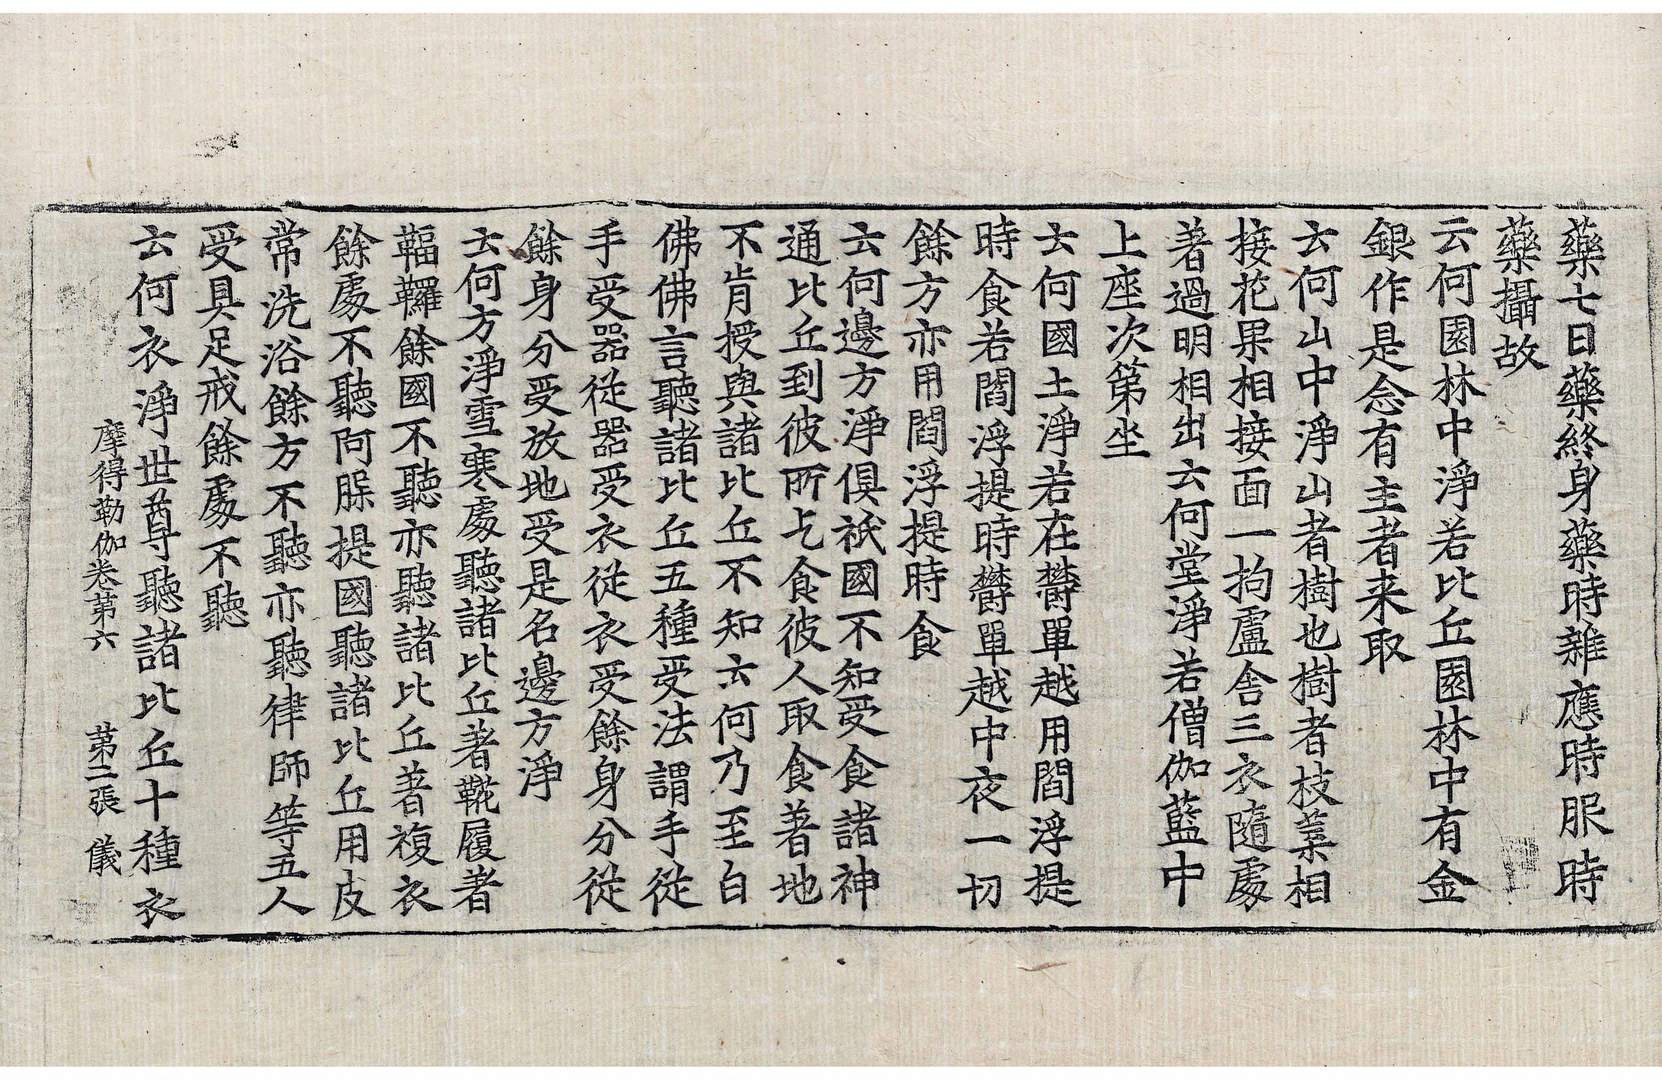 藥七日藥終身藥時雜應時服時
藥攝故
云何園林中淨若比丘園林中有金
銀作是念有主者来取
云何山中淨山者樹也樹者枝葉相
接花果相接接面一拘盧舍三衣隨處
著過明相出云何堂淨若僧伽藍中
上座次第坐
云何國土淨若在欝單越用閻浮提
時食若閻浮提時欝單越中夜一切
餘方亦用閻浮提時食
云何邊方淨俱祇國不知受食諸神
通比丘到彼所乞食彼人取食著地
不肯授與諸比丘不知云何乃至白
佛佛言聽諸比丘五種受法謂手從
手受器從器受衣從衣受餘身分從
餘身分受放地受是名邊方淨
云何方淨雪寒處聽諸比丘著靴履著
鞴鞾餘國不聽亦聽諸比丘著複衣
餘處不聽阿䐗提國聽諸比丘用皮
常洗浴餘方不聽亦聽律師等五人
受具足戒餘處不聽
云何衣淨世尊聽諸比丘十種衣
摩得勒伽卷第六 第二張 儀